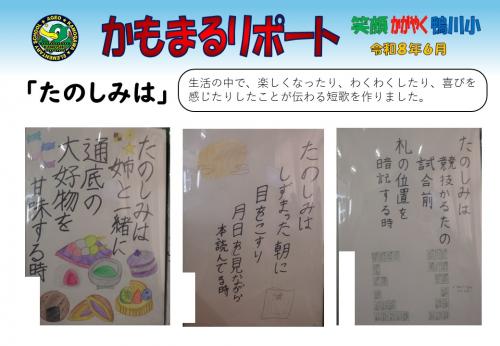 かもまるリポート
笑顔かがやく鴨川小
令和8年6月
「たのしみは」
生活の中で、楽しくなったり、わくわくしたり、喜びを
感じたりしたことが伝わる短歌を作りました。
たのしみは
姉と一緒に
通底の
大好物を
甘味する時
たのしみは
しずまった朝に
目をこすり
月日を見ながら
本読んでる時
たのしみは
競技かるたの
試合前
札の位置を
暗記する時